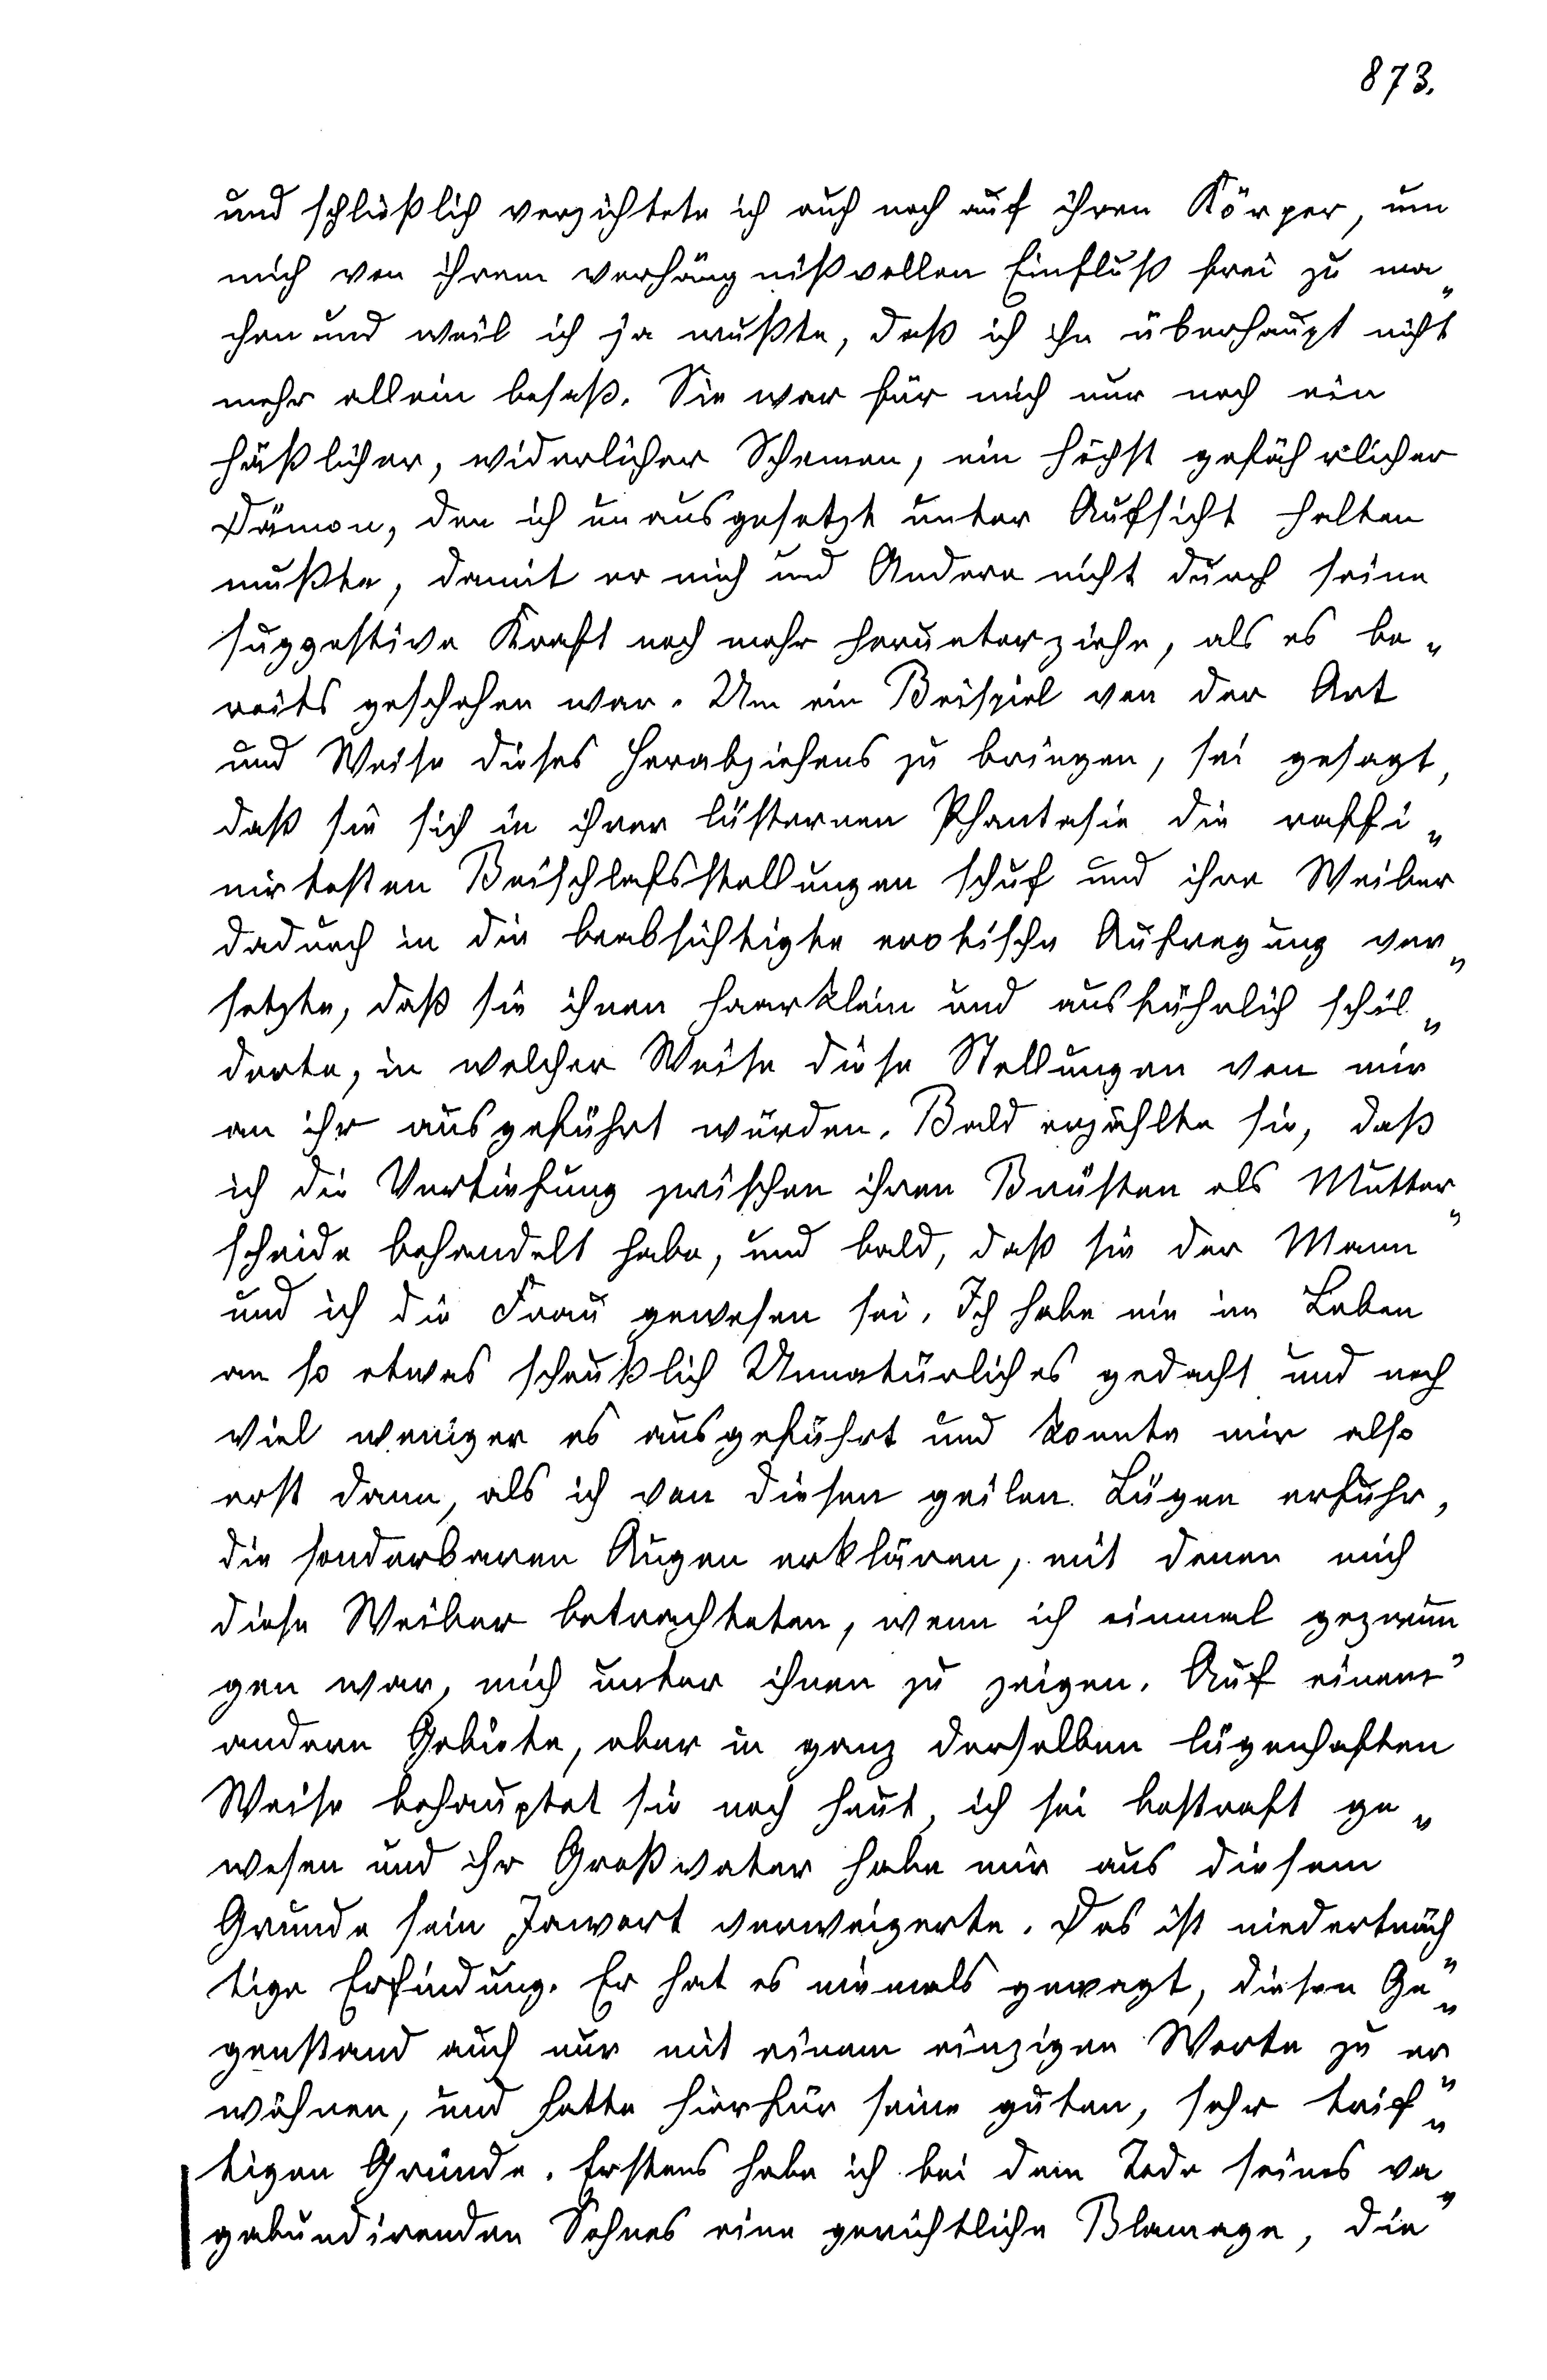 873.
und schließlich verzichtete ich auch noch auf ihren Körper, um
mich von ihrem verhängnißvollen Einfluß frei zu ma„
chen und weil ich ja wußte, daß ich ihn überhaupt nicht
mehr allein besaß. Sie war für mich nur noch ein
häßlicher, widerlicher Schemen, ein höchst gefährlicher
Dämon, den ich unausgesetzt unter Aufsicht halten
mußte, damit er mich und Andere nicht durch seine
suggestive Kraft noch mehr herunterziehe, als es be„
reits geschehen war. Um ein Beispiel von der Art
und Weise dieses Herabziehens zu bringen, sei gesagt,
daß sie sich in ihrer lüsternen Phantasie die raffi„
nirtesten Beischlafsstellungen schuf und ihre Weiber
dadurch in die beabsichtigte erotische Aufregung ver„
setzte, daß sie ihnen haarklein und ausführlich schil„
derte, in welcher Weise diese Stellungen von mir
an ihr ausgeführt würden. Bald erzählte sie, daß
ich die Vertiefung zwischen ihren Brüsten als Mutter„
scheide behandelt habe, und bald, daß sie der Mann
und ich die Frau gewesen sei. Ich habe nie im Leben
an so etwas scheußlich Unnatürliches gedacht und noch
viel weniger es ausgeführt und konnte mir also
erst dann, als ich von diesen geilen Lügen erfuhr,
die sonderbaren Augen erklären, mit denen mich
diese Weiber betrachteten, wenn ich einmal gezwun„
gen war, mich unter ihnen zu zeigen. Auf einem
andern Gebiete, aber in ganz derselben lügenhaften
Weise behauptet sie noch heut, ich sei bestraft ge„
wesen und ihr Großvater habe mir aus diesem
Grunde sein Jawort verweigerte. Das ist niederträch„
tige Erfindung. Er hat es niemals gewagt, diesen Ge„
genstand auch nur mit einem einzigen Worte zu er„
wähnen, und hatte hierfür seine guten, sehr trif„
tigen Gründe. Erstens habe ich bei dem Tode seines va„
gabundirenden Sohnes eine gerichtliche Blamage, die